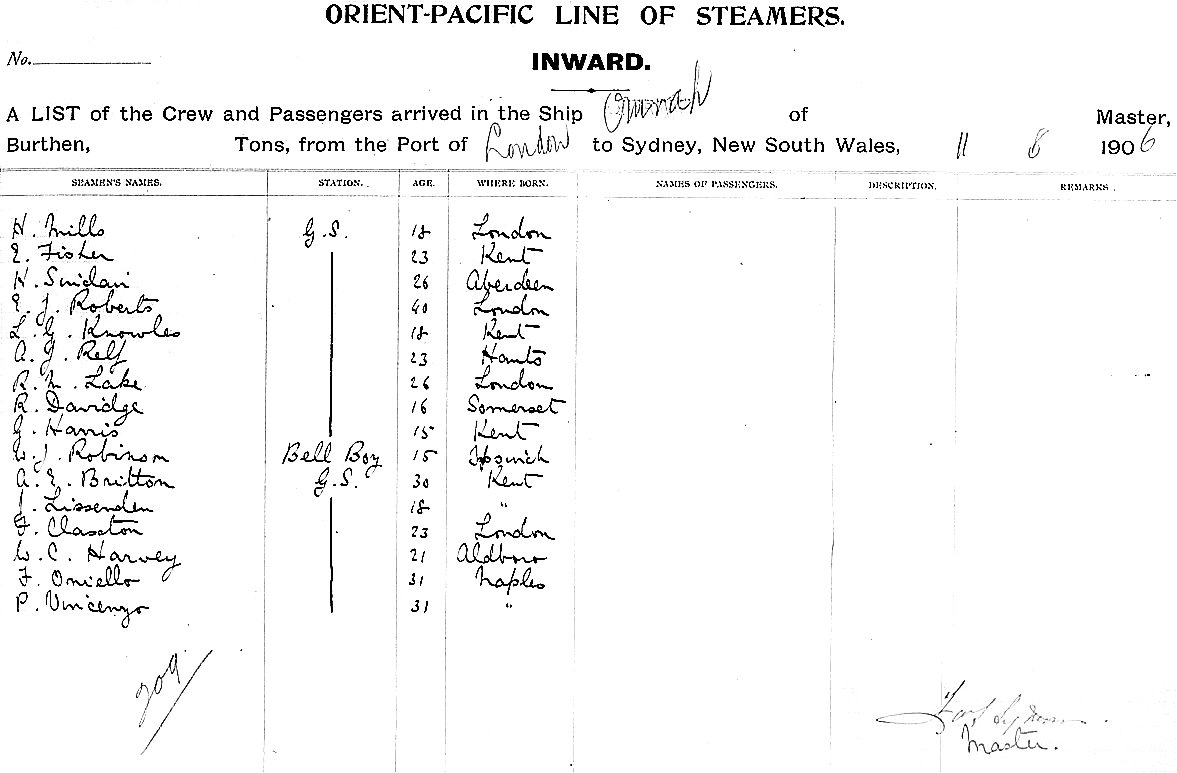 ORIENT-PACIFIC LINE OF STEAMERS.
No.
INWARD.
A LIST of the Crew and Passengers arrived in the Ship Omrah of Master,
Burthen, Tons, from the Port of London to Sydney, New South Wales, 11 8 1906
SEAMEN'S NAMES. STATION. AGE. WHERE BORN. NAMES OF PASSENGERS. DESCRIPTION. REMARKS
H. Mills G.S. 18 London
E. Fisher 23 Kent
H. Sinclair 26 Aberdeen
E. J. Roberts 40 London
L. G. Knowles 18 Kent
A. J. Relf 23 Hants
R. M. Lake 26 London
R. Davidge 16 Somerset
G. Harris 15 Kent
W. J. Robinson Bell Boy 15 Ipswich
A. E. Britton G.S. 30 Kent
J. Lissenden 18 "
F. Claxton 23 London
W. C. Harvey 21 Aldboro
F. Oniello 31 Naples
P. Vincenzo 31 "
209
Master.